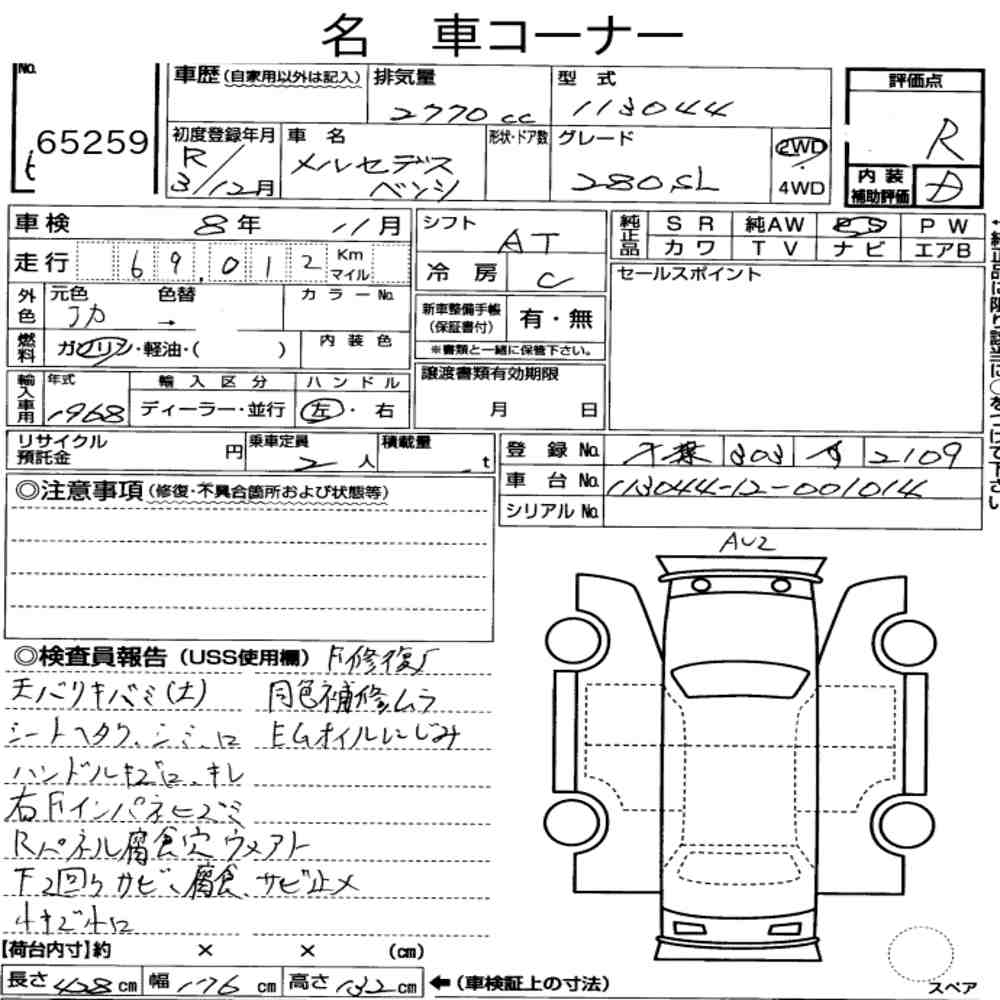 名 車コーナー
No.
65259
車歴(自家用以外は記入)
排気量
2770cc
型 式
113044
評価点
R
初度登録年月
R
3/12月
車 名
メルセデス
ベンツ
形状・ドア数
グレード
280SL
2WD
4WD
内装
補助評価
D
車検
8年 11月
走行
69.012
Km
マイル
外色
元色
色替
→
カラーNo.
燃料
ガソリン・軽油・( )
内装色
輸入車用
年式
1968
輸入区分
ディーラー・並行
ハンドル
左・右
シフト
AT
冷房
C
新車整備手帳
(保証書付)
有・無
※書類と一緒に保管下さい。
譲渡書類有効期限
月 日
純正品
SR 純AW PS PW
カワ TV ナビ エアB
セールスポイント
←純正品に限り該当に○をつけて下さい
リサイクル
預託金
円
乗車定員
2人
積載量
.t
登録No.
千葉 303 2109
車台No.
113044-12-001014
シリアルNo.
◎注意事項(修復・不具合箇所および状態等)
AU2
◎検査員報告(USS使用欄) F修復
天バリキバミ(大) 同色補修ムラ
シートヘタリ、シミ、ロ EMオイルにじみ
ハンドルキズロ、キレ
右Fインパネヒズミ
Rパネル腐食穴ウメアト
下2回りサビ、腐食、サビ止メ
小キズ小凹
【荷台内寸】約 × × (cm)
長さ408cm 幅176cm 高さ132cm ←(車検証上の寸法)
スペア